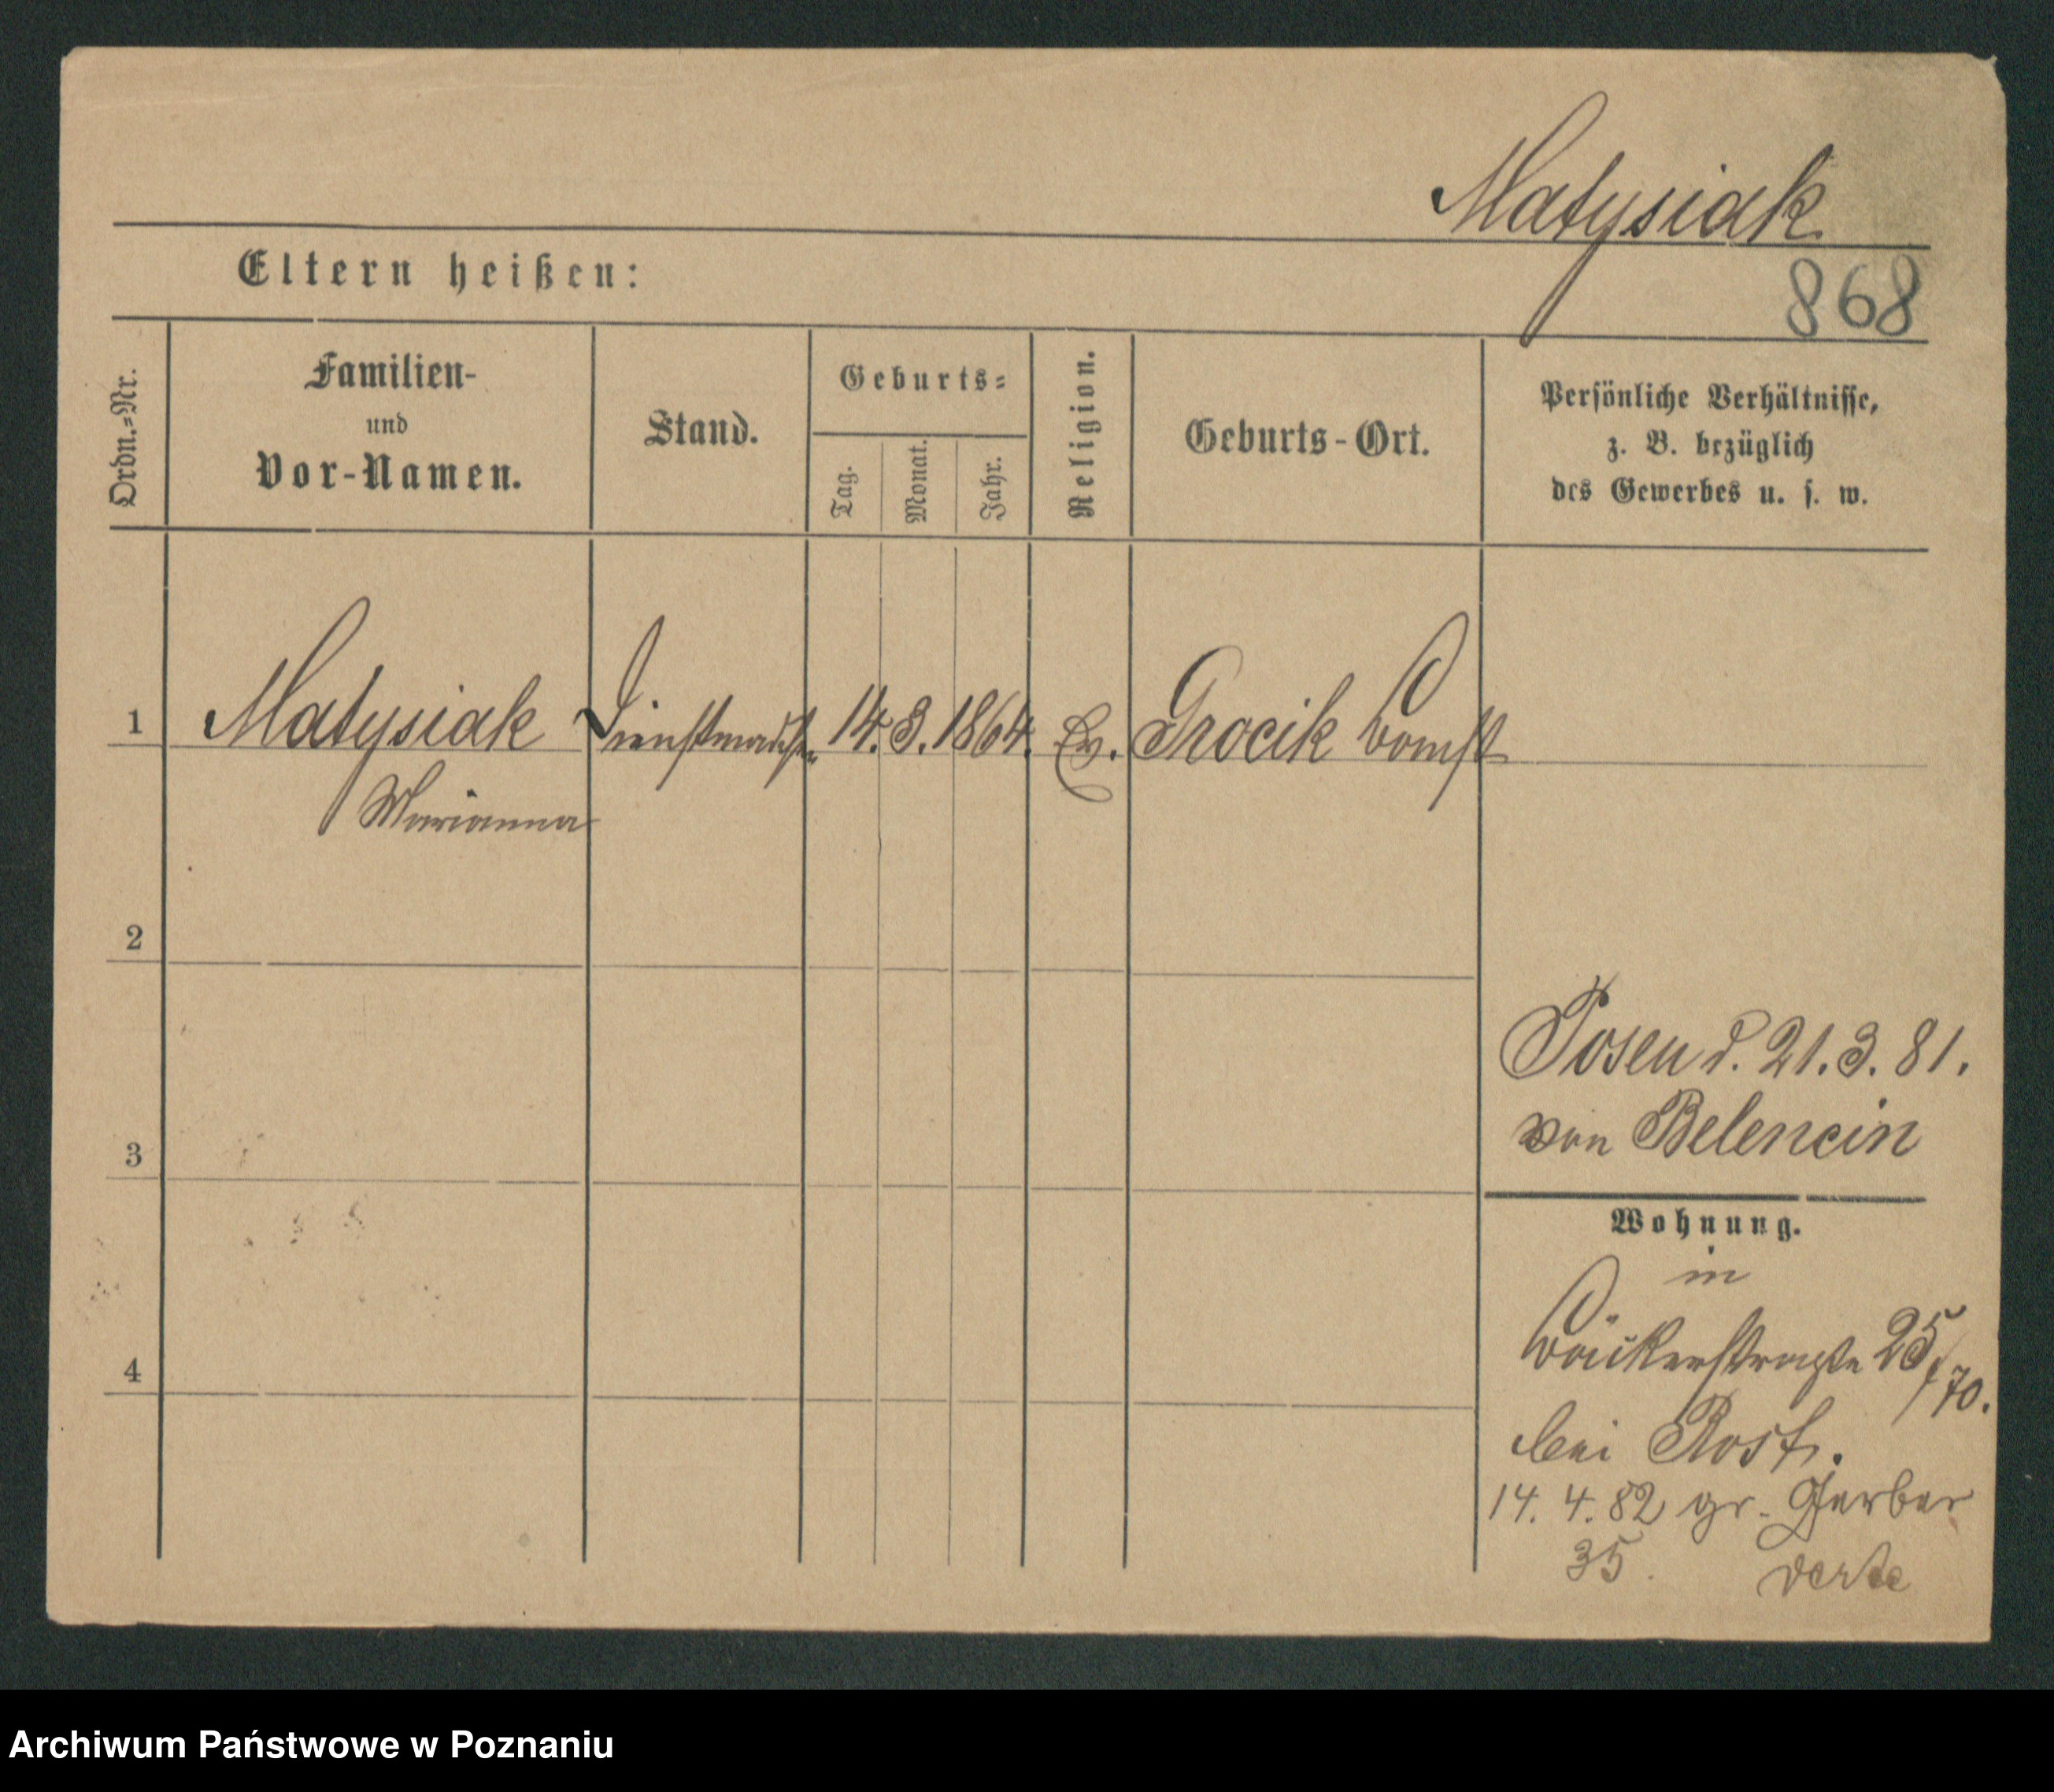 Matysiak
868
Eltern heißen:
Ordn.=Nr.
Familien-
und
Vor-Namen.
Stand.
Geburts=
Tag.
Monat.
Jahr.
Religion.
Geburts-Ort.
Persönliche Verhältnisse,
z. B. bezüglich
des Gewerbes u. s. w.
1 Matysiak 14. 3. 1864. Ev. Grocik Bomst
Marianna
2
3
4
Posen d. 21. 3. 81.
von Belencin
Wohnung.
in
Bäckerstraße 25/70.
bei Rost.
14. 4. 82 gr. Gerber
35.
Archiwum Państwowe w Poznaniu